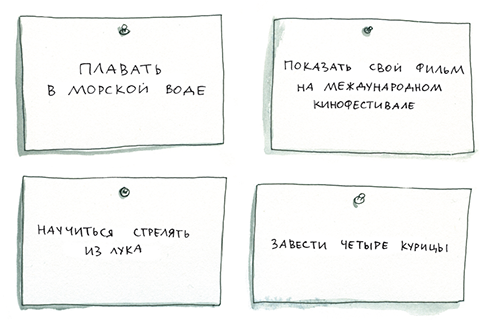 ПЛАВАТЬ
В МОРСКОЙ ВОДЕ
ПОКАЗАТЬ СВОЙ ФИЛЬМ
НА МЕЖДУНАРОДНОМ
КИНОФЕСТИВАЛЕ
НАУЧИТЬСЯ СТРЕЛЯТЬ
ИЗ ЛУКА
ЗАВЕСТИ ЧЕТЫРЕ КУРИЦЫ